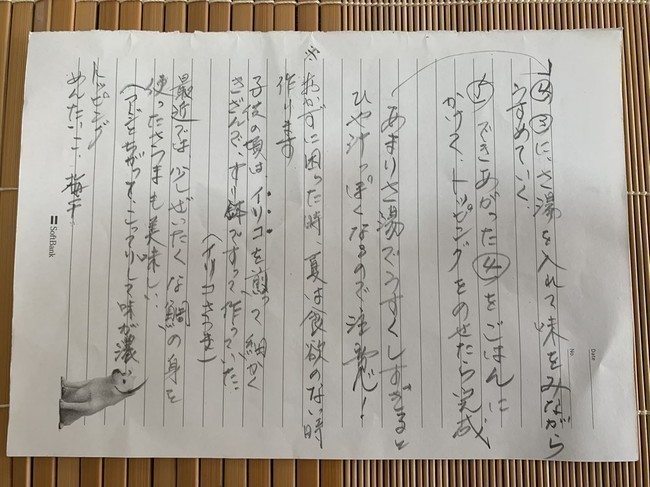 ④ ③に、さ湯を入れて味をみながら
うすめていく。
⑤ できあがった④をごはんに
かけて、トッピングをのせたら完成
あまりさ湯でうすくしすぎると
ひや汁っぽくなるので注意!
※おかずに困った時、夏は食欲のない時
作ります
子供の頃は、イリコを煎って細かく
きざんで、すり鉢ですって作っていた
(イリコさつま)
最近では、少しぜいたくな鯛の身を
使ったさつまも美味しい。
(アジとちがって、こってりして味が濃い)
トッピング
めんたいこ、梅干
SoftBank
Date
No.